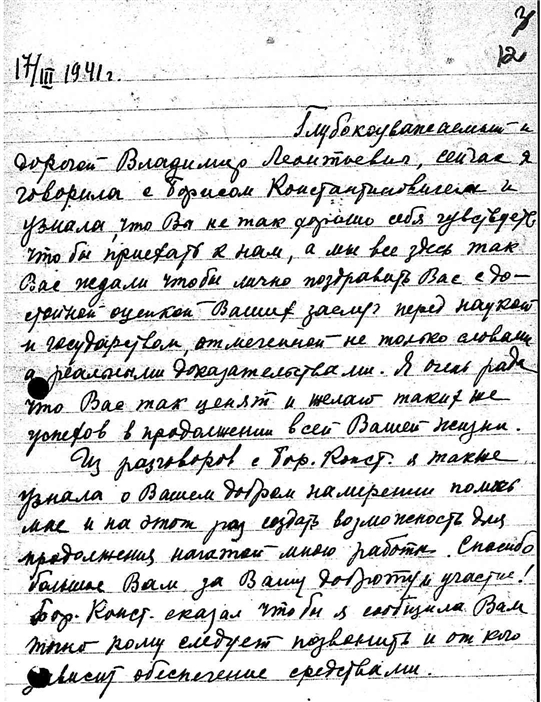 7
12
17/III 1941 г.
Глубокоуважаемый и
дорогой Владимир Леонтьевич, сейчас я
говорила с Борисом Константиновичем и
узнала, что Вы не так хорошо себя чувствуете
что бы приехать к нам, а мы все здесь так
Вас ждали чтобы лично поздравить Вас с до-
стойной оценкой Ваших заслуг перед наукой
и государством, отмеченной не только словами
а реальными доказательствами. Я очень рада
что Вас так ценят и желаю таких же
успехов в продолжении всей Вашей жизни.
Из разговоров с Бор. Конст. я также
узнала о Вашем добром намерении помочь
мне и на этот раз создать возможность для
продолжения начатой мною работы. Спасибо
большое Вам за Вашу доброту и участие!
Бор. Конст. сказал что бы я сообщила Вам
точно кому следует позвонить и от кого
зависит обеспечение средствами.